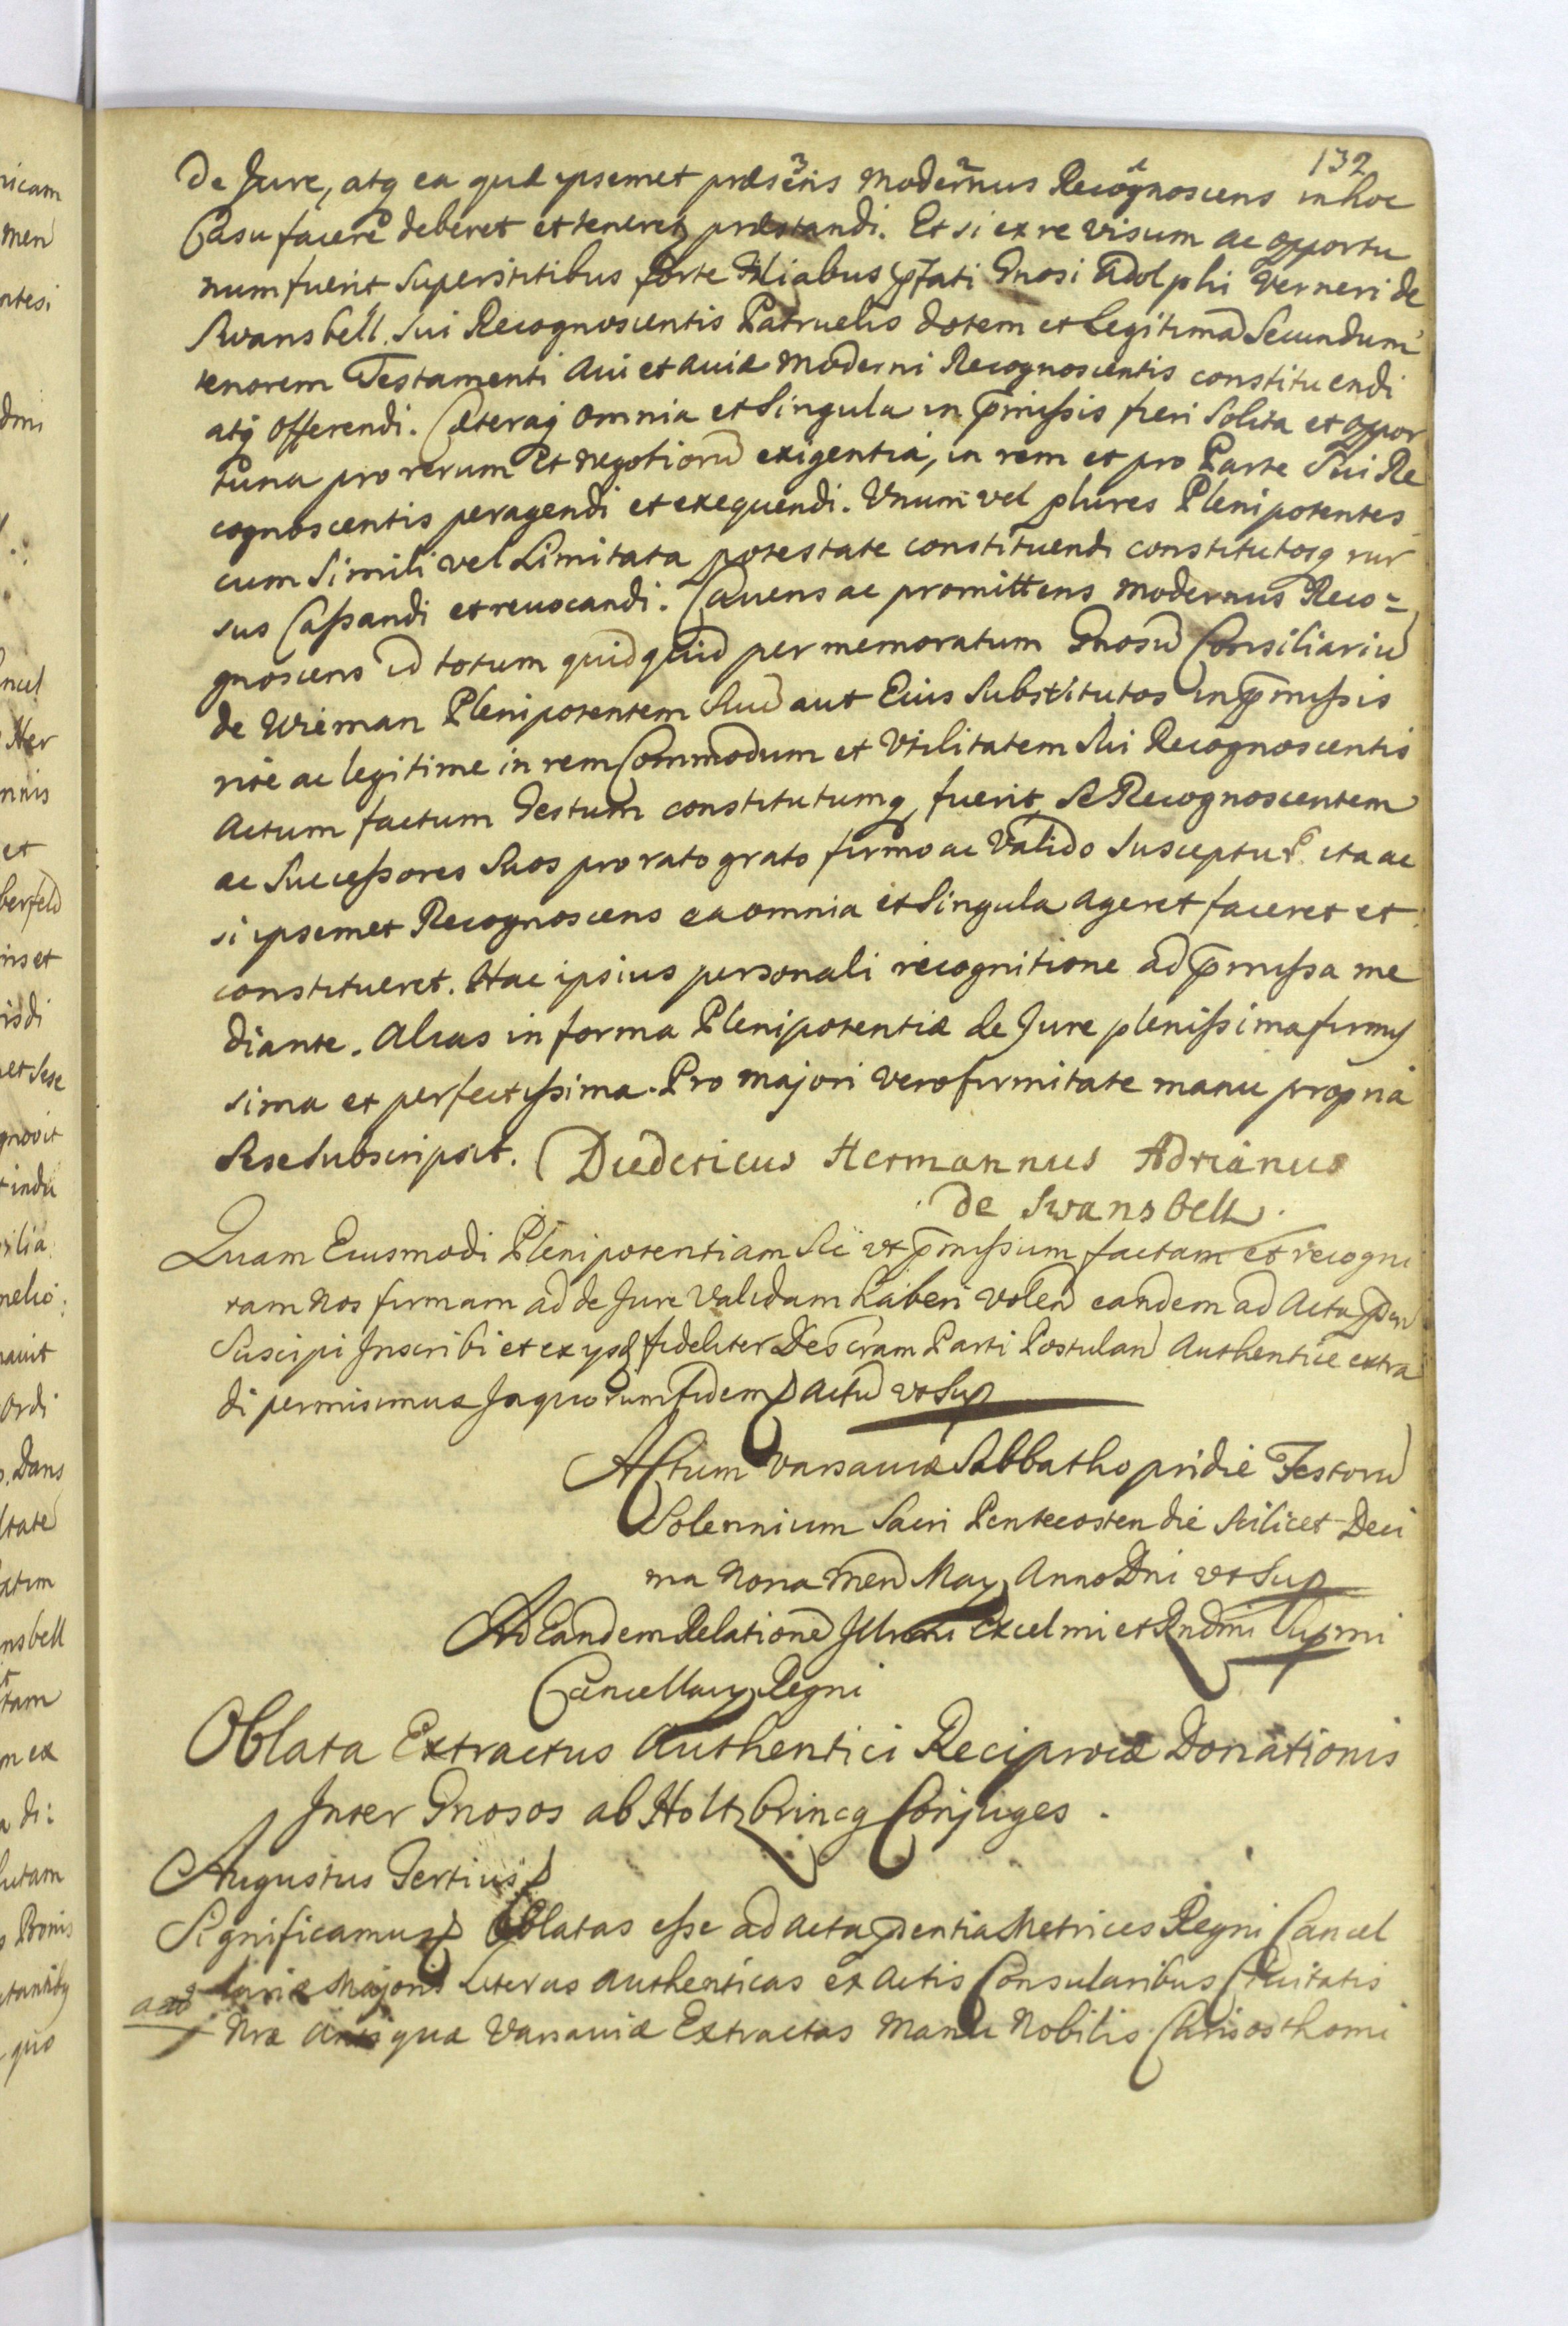 132
de Jure, atq ea quæ ipsemet præsens modernus Recognoscens in hoc
Casu facere deberet et teneretq præstandi. Et si ex re visum ac opportu
num fuerit Superstitibus forte Filiabus pfati Gnosi Adolphi Verneri de
Swansbell Sui Recognoscentis Patruelis dotem et Legitimã Secundum
tenorem Testamenti Aui et Auiæ Moderni Recognoscentis constituendi
atq offerendi. Cæteraq omnia et Singula in pmißis fieri Solita et oppor
tuna pro rerum et negotiorũ exigentia, in rem et pro Parte Sui Re
cognoscentis peragendi et exequendi. Vnum vel plures Plenipotentes
cum Simili vel Limitata potestate constituendi constitutosq rur
sus Caßandi et reuocandi. Cauens ac promittens modernus Reco=
gnoscens id totum quidquid per memoratum Gnosũ Consiliariũ
de Wieman Plenipotentem Suũ aut Eius Substitutos in pmißis
rite ac legitime in rem Commodum et Vtilitatem Sui Recognoscentis
Actum factum Gestum constitutumq fuerit, Se Recognoscentem
ac Succeßores Suos pro rato grato firmo ac Valido Susceptur. ita ac
si ipsemet Recognoscens ea omnia et Singula ageret faceret et
constitueret. Hac ipsius personali recognitione ad pmißa me
diante. Alias in forma Plenipotentiæ de Jure plenißima firmis
sima et perfectißima. Pro majori vero firmitate manu propria
Sese Subscripsit. Diedericus Hermannus Adrianus
de Swansbell.
Quam Eiusmodi Plenipotentiam Sic vt pmißum factam et recogni
tam Nos firmam ad de Jure Validam haberi volen eandem ad Acta pn
Suscipi Inscribi et ex ysd fideliter Descram Parti Postulan Authentice extra
di permisimus In quorum fidem Actũ vt Sup
Actum Varsauiæ Sabbatho pridie Festorũ
Solennium Sacri Pentecosten die Scilicet Deci
ma Nona Men May Anno Dni vt Sup
Ad Eandem Relationẽ Illmi Excelmi et Rndmi Supmi
Cancellary Regni
Oblata Extractus Authentici Reciprocæ Donationis
Inter Gnosos ab Holtzbrincg Conjuges.
Augustus Tertius
Significamus Oblatas eße ad Acta pntia Metrices Regni Cancel
lariæ Majoris Literas authenticas ex Actis Consularibus Ciuitatis
Nræ Antiquæ Varsauiæ Extractas Manu Nobilis Chrisosthomi